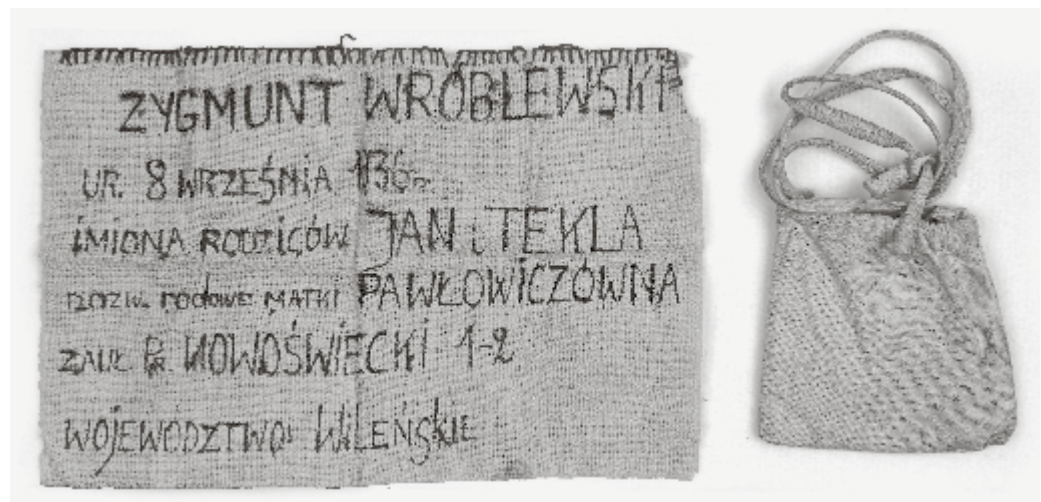 ZYGMUNT WRÓBLEWSKI
UR. 8 WRZEŚNIA 1936r.
IMIONA RODZICÓW JAN i TEKLA
NAZW. RODOWE MATKI PAWŁOWICZÓWNA
ZAUŁ. NOWOŚWIECKI 1-2
WOJEWÓDZTWO WILEŃSKIE